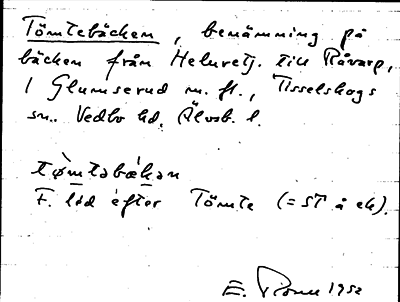 Tömtebäcken, benämning på
bäcken från Helvetj. till Råvarp,
i Glumserud m. fl., Tisselskogs
sn. Vedbo hd. Älvsb. l.
tømtabækan
F. led efter Tömte (= ST å ek).
E. 1952